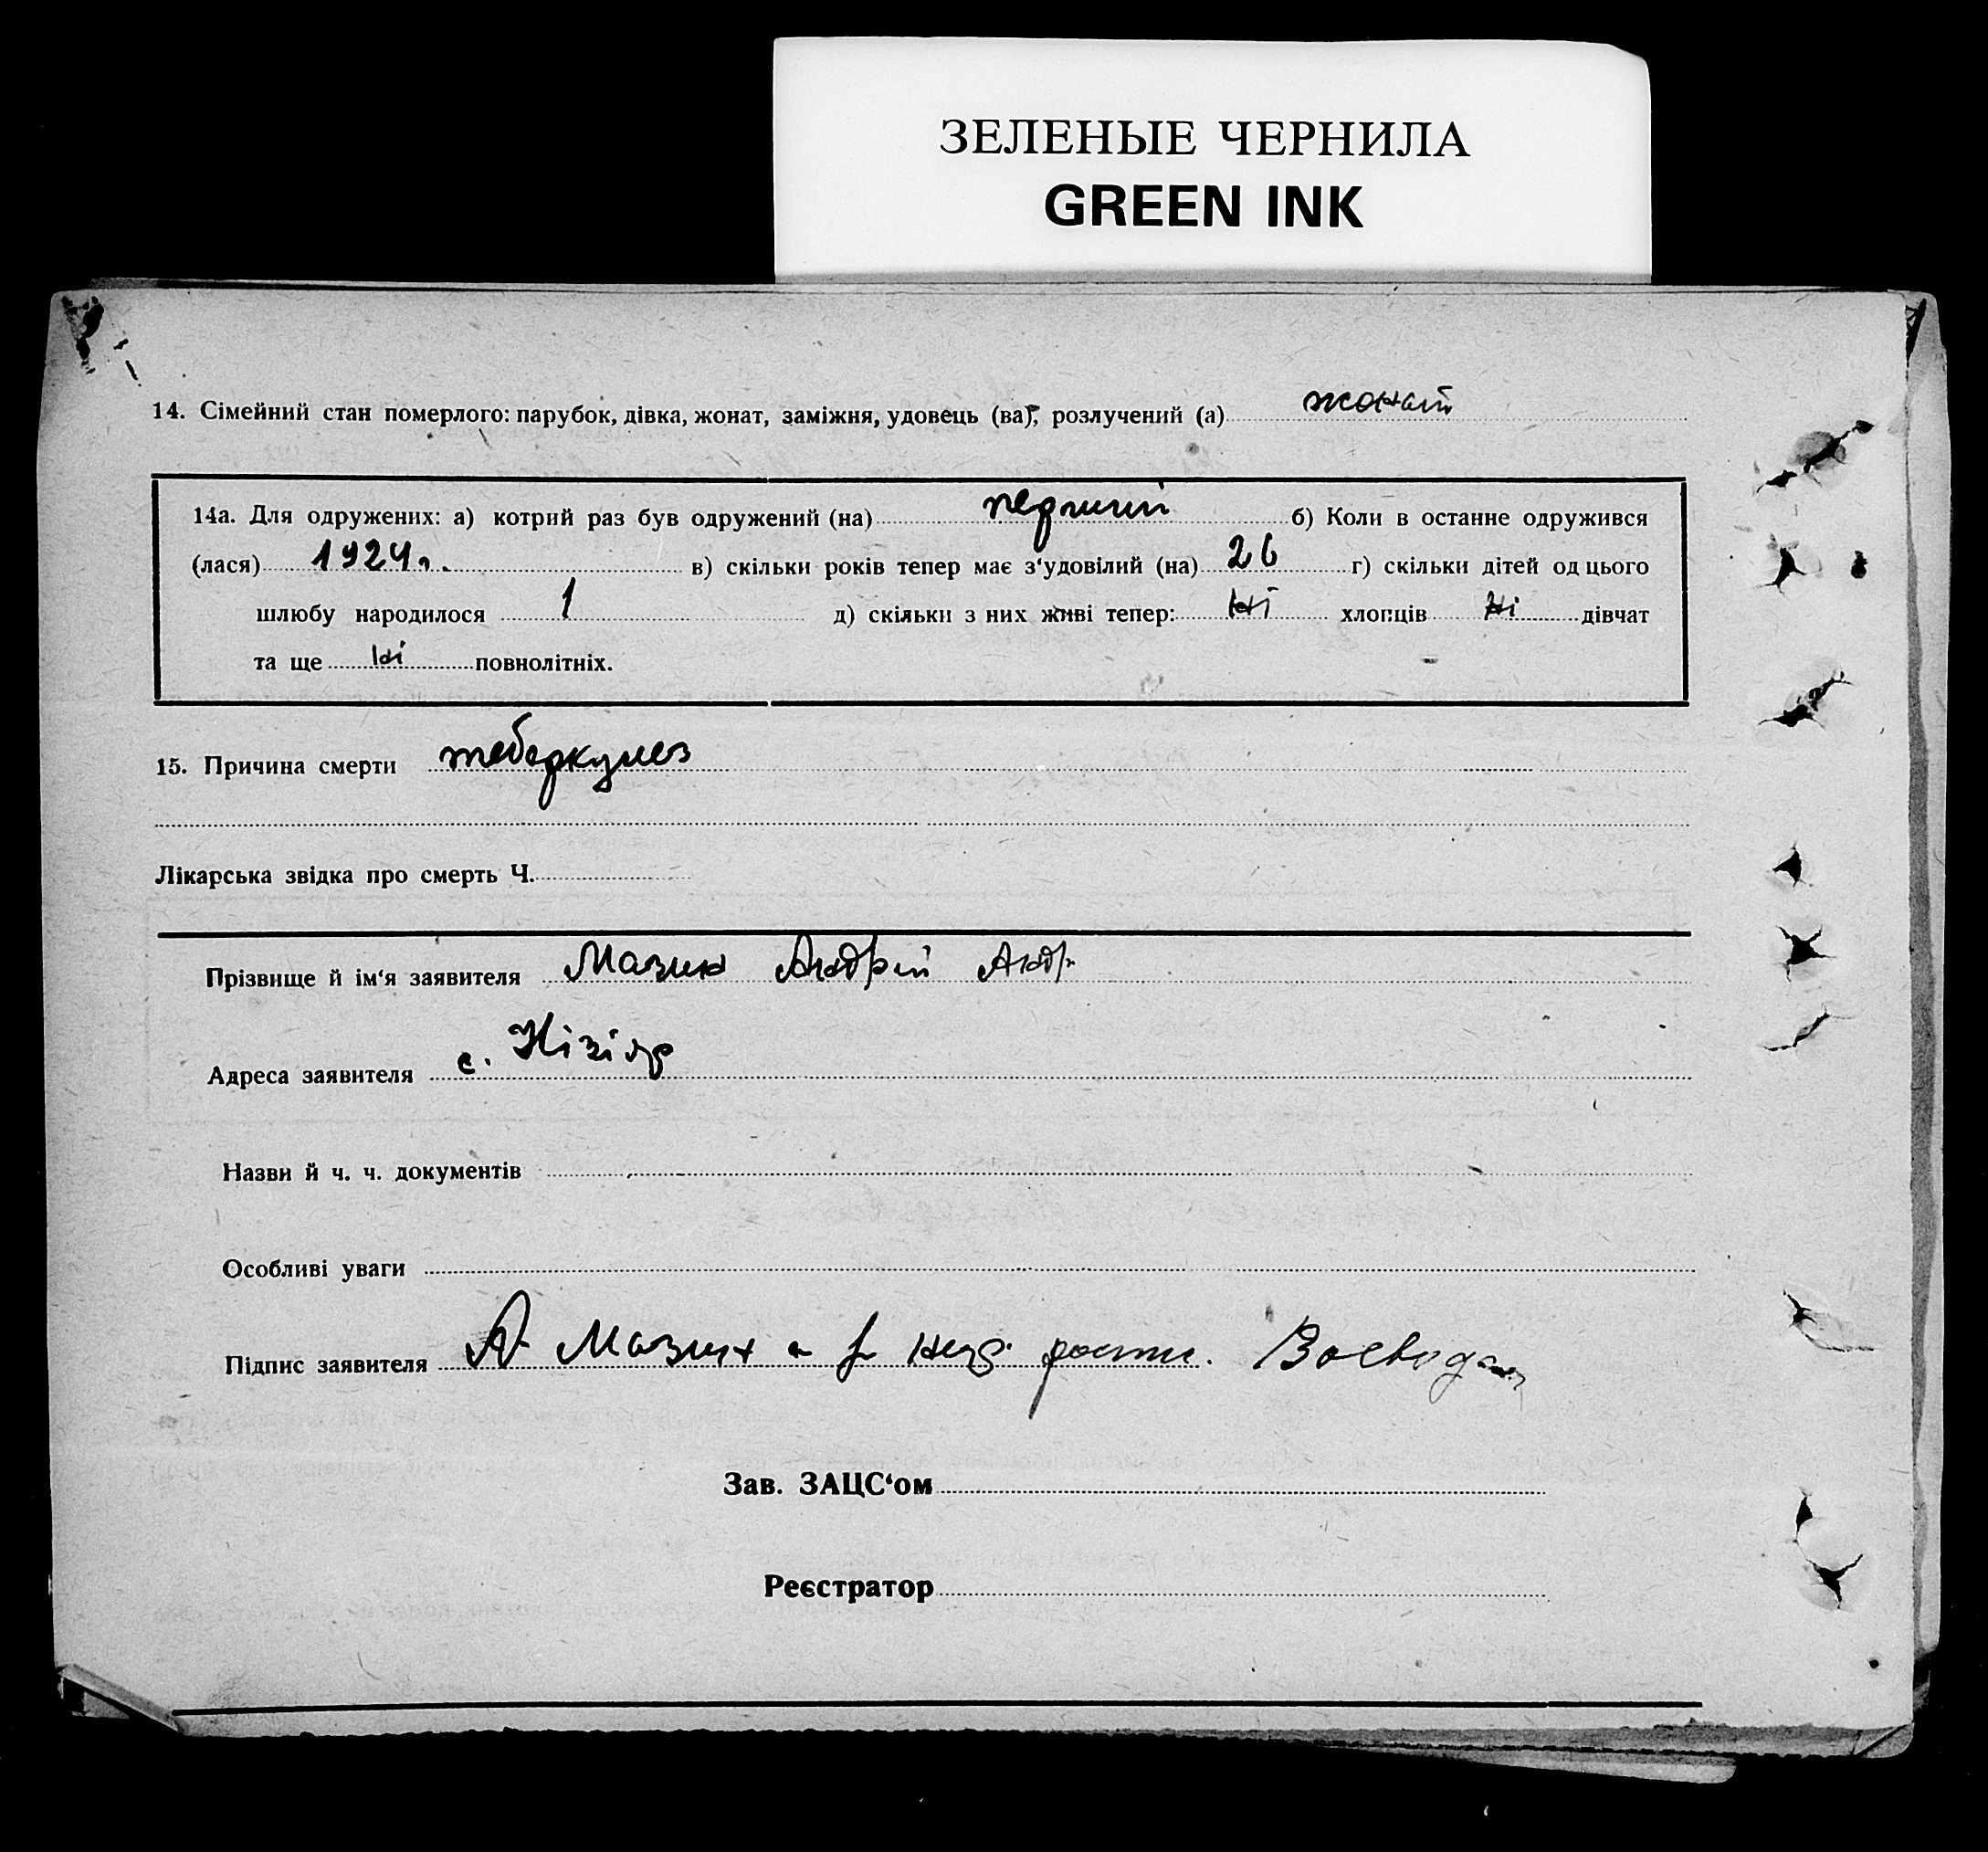 ЗЕЛЕНЫЕ ЧЕРНИЛА
GREEN INK
14. Сімейний стан померлого: парубок, дівка, жонат, заміжня, удовець (ва), розлучений (а) жонат
14а. Для одружених: а) котрий раз був одружений (на) перший б) Коли в останнє одружився
(лася) 1924 р. в) скільки років тепер має з‘удовілий (на) 26 г) скільки дітей од цього
шлюбу народилося 1 д) скільки з них живі тепер: ні хлопців ні дівчат
та ще ні повнолітніх.
15. Причина смерти теберкулез
Лікарська звідка про смерть Ч.
Прізвище й ім‘я заявителя Мазин Андрій Андр
Адреса заявителя с. Нізіяр
Назви й ч. ч. документів
Особливі уваги
Підпис заявителя А Мазин а
Зав. ЗАЦС‘ом
Реєстратор